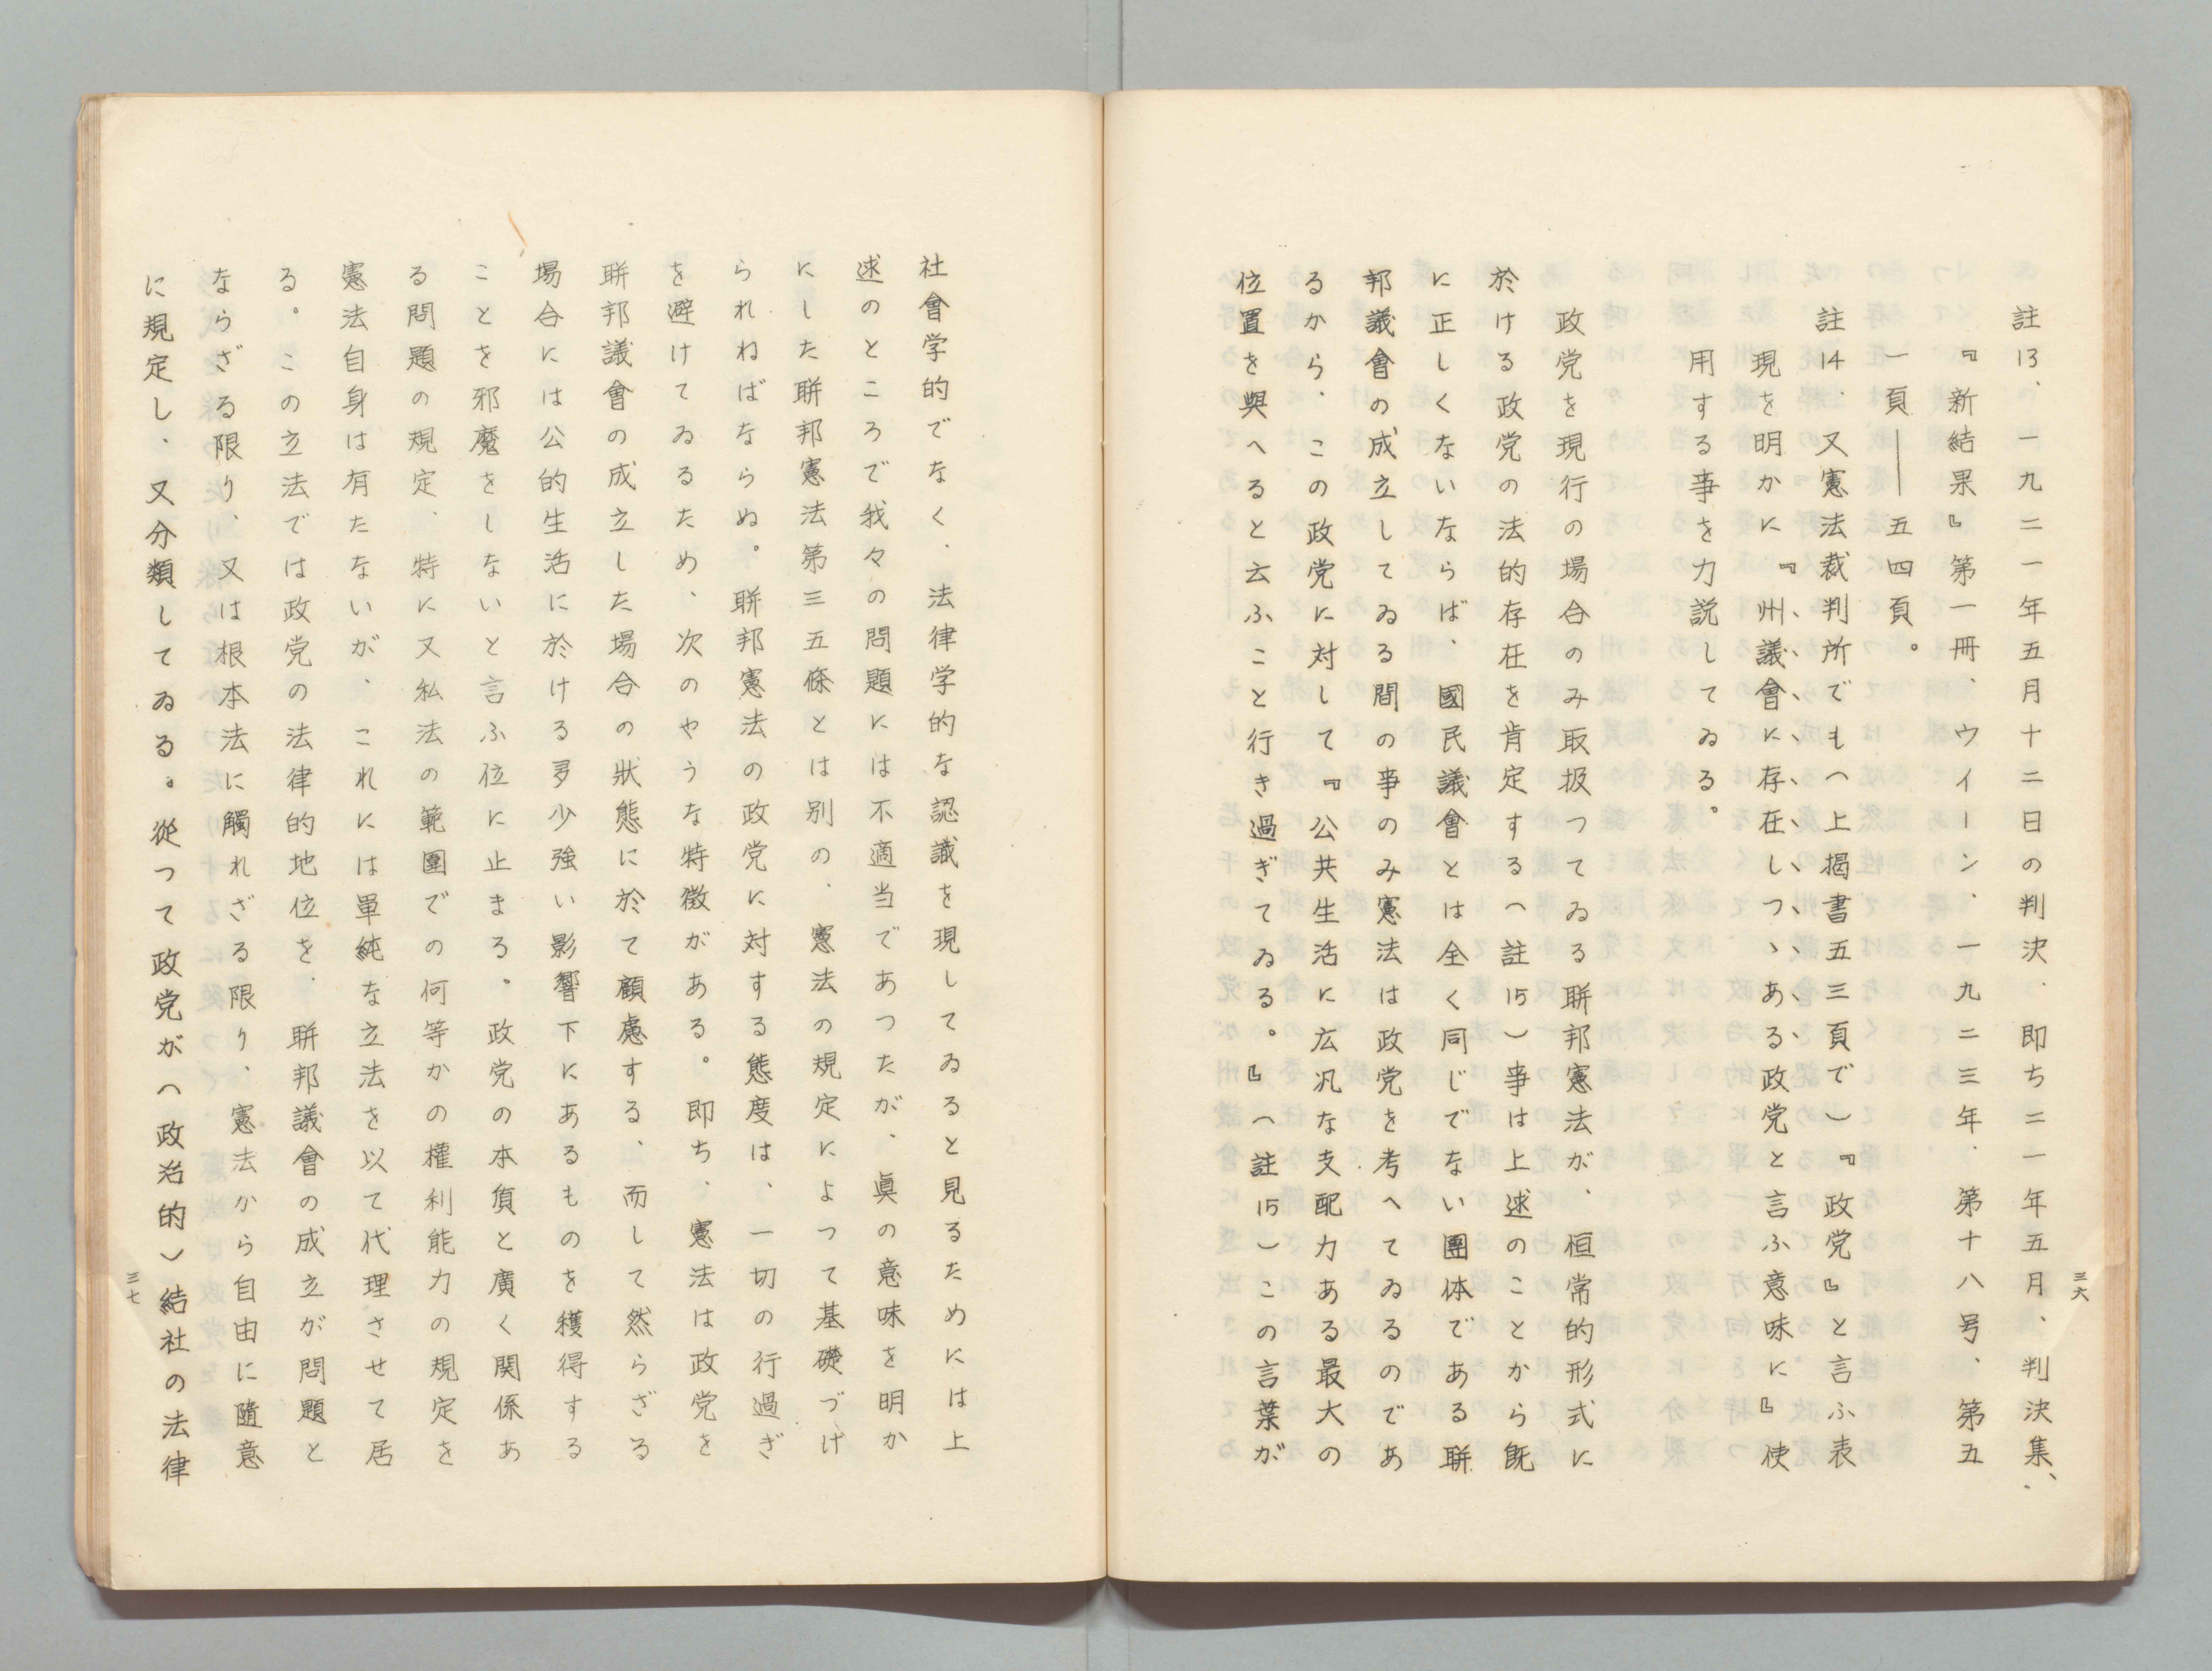 三六
註13、一九二一年五月十二日の判決、即ち二一年五月、判決集、
『新結果』第一冊、ウイーン、一九二三年、第十八号、第五
一頁――五四頁。
註14、又憲法裁判所でも（上揭書五三頁で）『政党』と言ふ表
現を明かに『州議會に存在しつゝある政党と言ふ意味に』使
用する事を力説してゐる。
政党を現行の場合のみ取扱つてゐる聯邦憲法が、恒常的形式に
於ける政党の法的存在を肯定する（註15）事は上述のことから既
に正しくないならば、國民議會とは全く同じでない團体である聯
邦議會の成立してゐる間の事のみ憲法は政党を考へてゐるのであ
るから、この政党に対して『公共生活に広汎な支配力ある最大の
位置を與へると云ふこと行き過ぎてゐる。』（註15）この言葉が
社會学的でなく、法律学的な認識を現してゐると見るためには上
述のところで我々の問題には不適当であつたが、眞の意味を明か
にした聯邦憲法第三五條とは別の、憲法の規定によつて基礎づけ
られねばならぬ。聯邦憲法の政党に対する態度は、一切の行過ぎ
を避けてゐるため、次のやうな特徴がある。即ち、憲法は政党を
聯邦議會の成立した場合の狀態に於て顧慮する、而して然らざる
場合には公的生活に於ける多少強い影響下にあるものを穫得する
ことを邪魔をしないと言ふ位に止まる。政党の本質と廣く関係あ
る問題の規定、特に又私法の範圍での何等かの權利能力の規定を
憲法自身は有たないが、これには單純な立法を以て代理させて居
る。この立法では政党の法律的地位を、聯邦議會の成立が問題と
ならざる限り、又は根本法に觸れざる限り、憲法から自由に隨意
に規定し、又分類してゐる。從つて政党が（政治的）結社の法律
三七